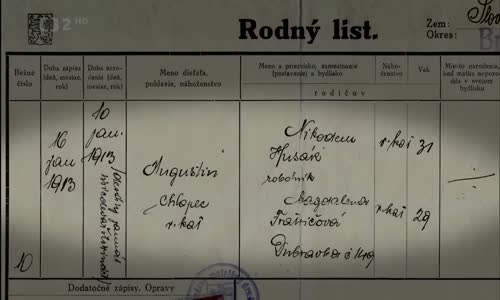 2 HD
Rodný list.
Zem:
Okres: Br
Bežné číslo
Doba zápisu (deň, mesiac, rok)
Doba narodenia (deň, mesiac, rok)
Meno dieťaťa, pohlavie, náboženstvo
Meno a priezvisko, zamestnanie (postavenie) a bydlisko
rodičov
Náboženstvo
Vek
Miesto narodenia, keď matka neporodila v svojom bydlisku
10
16 jan 1913
10 jan. 1913
Augustín
chlapec
r. kat
Nikodem
Husák
robotník
r. kat 31
Magdalena
r. kat 29
Dúbravka č 149
Dodatočné zápisy. Opravy